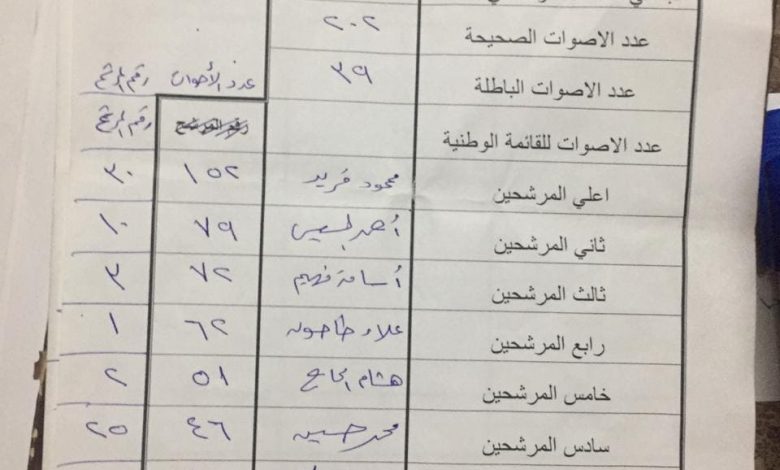 عدد الاصوات الصحيحة ٢٠٢
عدد الاصوات الباطلة ٣٩ عدد الأصوات رقم المرشح
عدد الاصوات للقائمة الوطنية رقم المرشح
اعلي المرشحين محمود فريد ١٥٢ ٣٠
ثاني المرشحين أحمد ٧٩ ١٠
ثالث المرشحين أسامة فهيم ٧٢ ٣
رابع المرشحين علاء طاحون ٦٢ ١
خامس المرشحين هشام الحاج ٥١ ٢
سادس المرشحين محمد حسين ٤٦ ٢٥